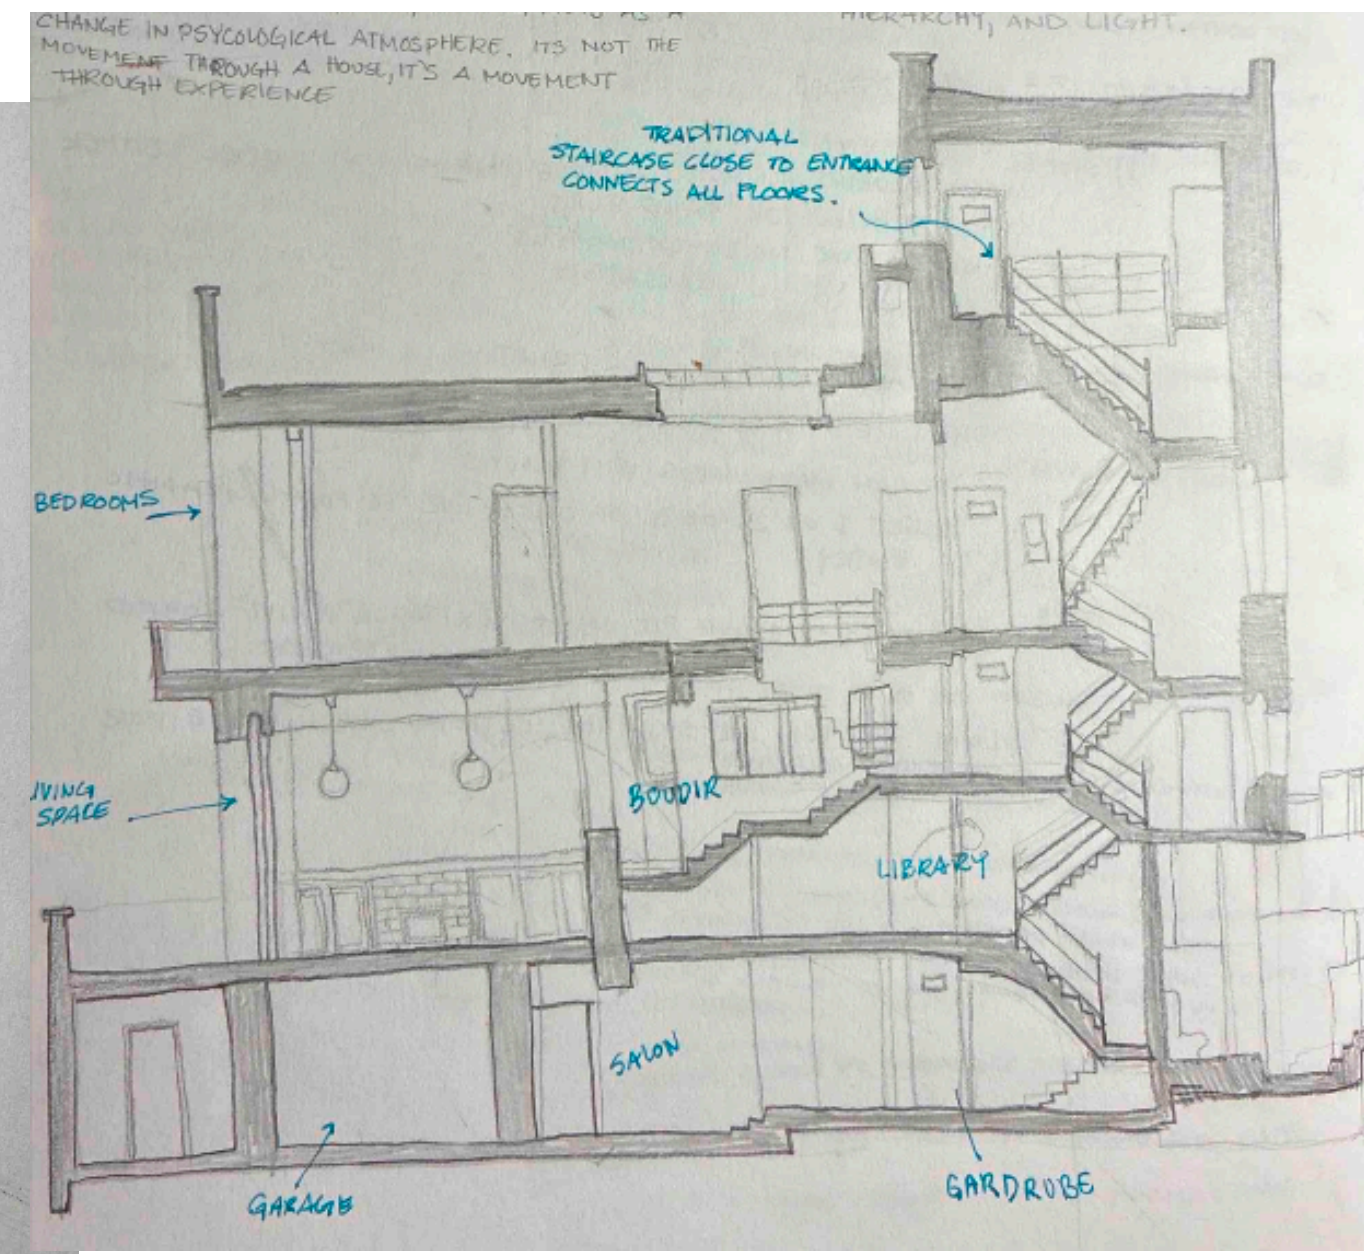 AS A
CHANGE IN PSYCOLOGICAL ATMOSPHERE. ITS NOT THE
MOVEMENT THROUGH A HOUSE, IT'S A MOVEMENT
THROUGH EXPERIENCE
HIERARCHY, AND LIGHT.
TRADITIONAL
STAIRCASE CLOSE TO ENTRANCE
CONNECTS ALL FLOORS.
BEDROOMS
IVING
SPACE
BOUDIR
LIBRARY
SALON
GARAGE
GARDRUBE